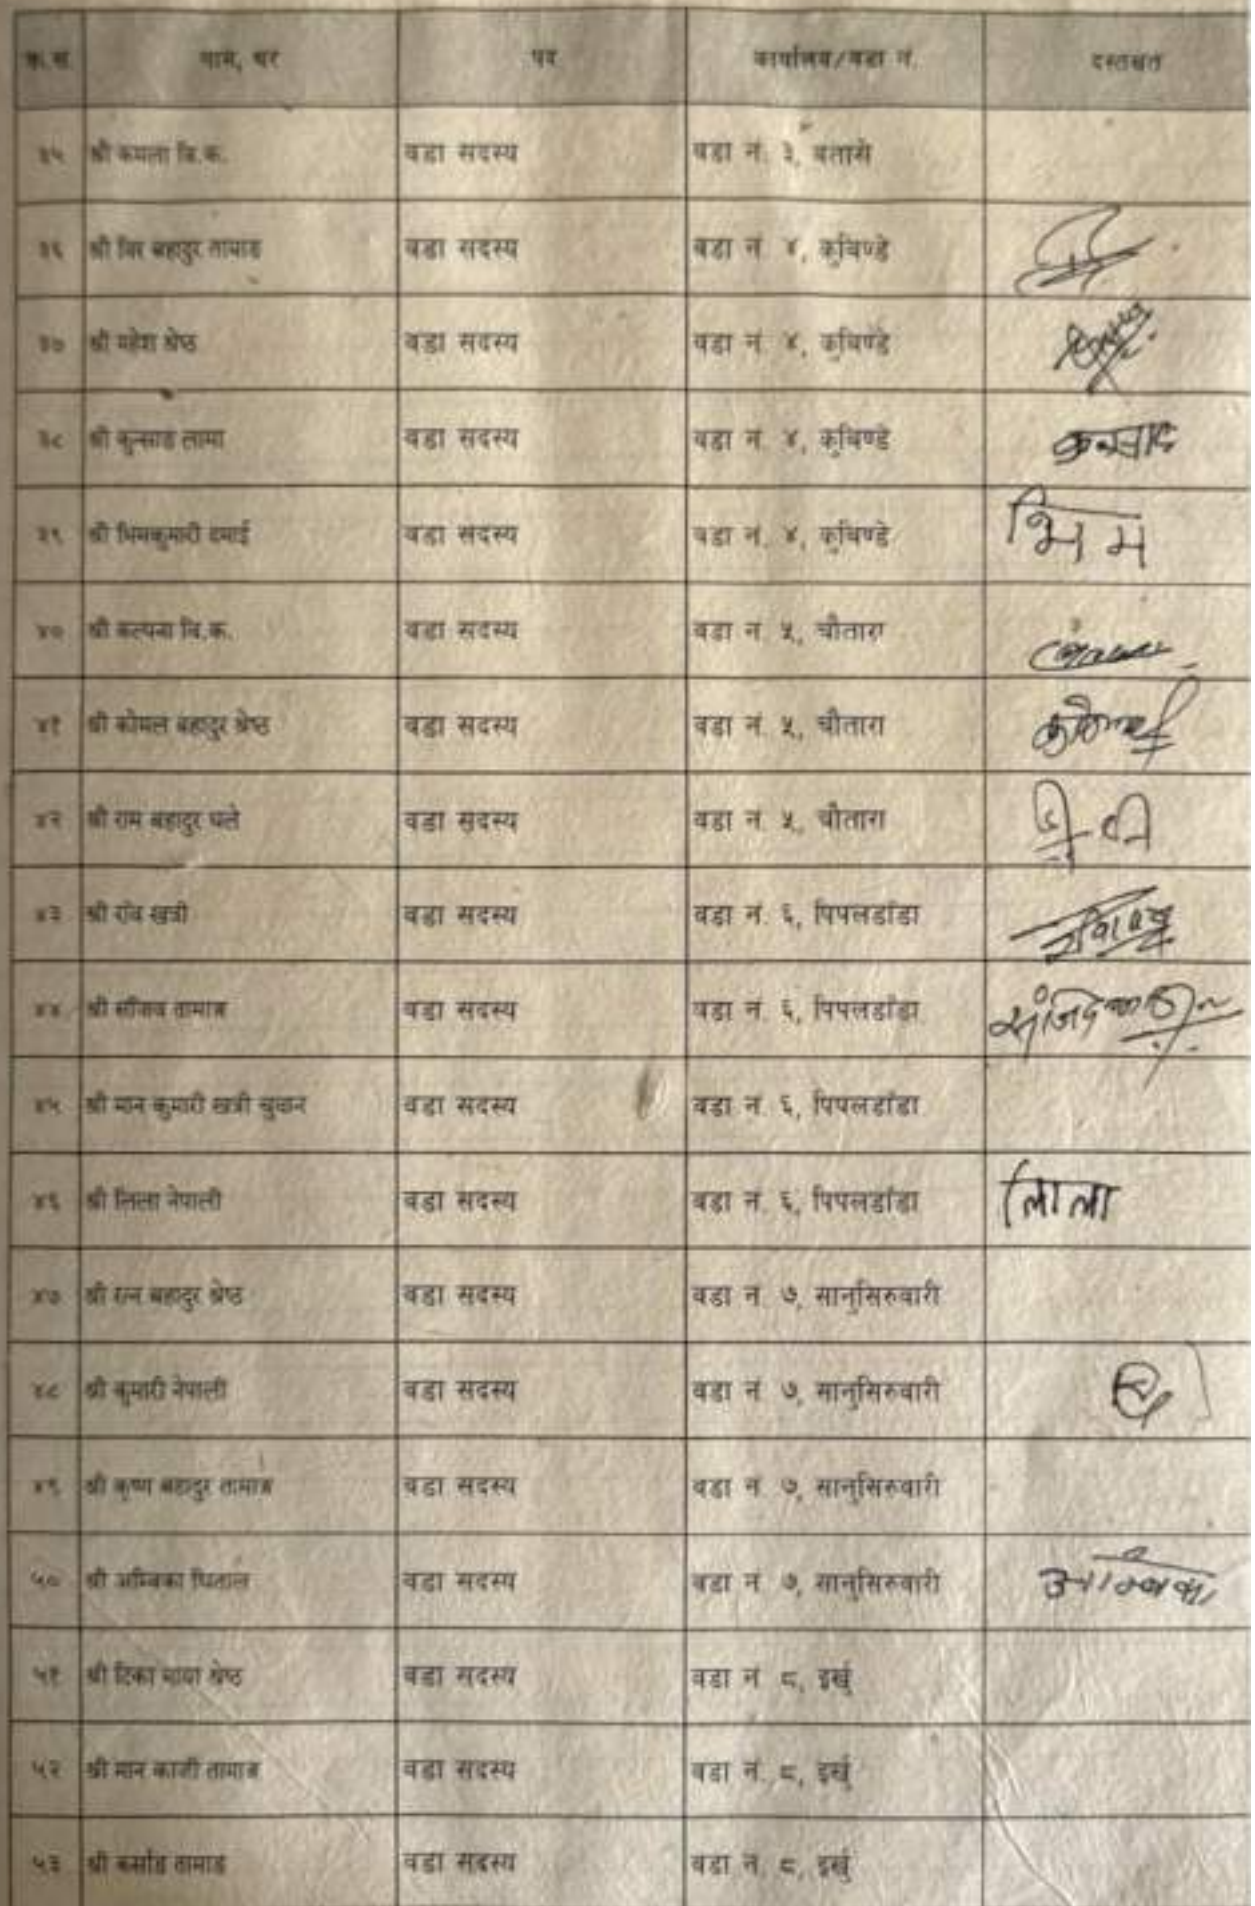 क.स. नाम, थर पद कार्यालय/वडा नं. दस्तखत
३५ श्री कमला वि.क. वडा सदस्य वडा नं. ३, बतासे
३६ श्री विर बहादुर तामाङ वडा सदस्य वडा नं. ४, कुविण्डे
३७ श्री महेश श्रेष्ठ वडा सदस्य वडा नं. ४, कुविण्डे
३८ श्री कुन्साङ लामा वडा सदस्य वडा नं. ४, कुविण्डे
३९ श्री भिमकुमारी दमाई वडा सदस्य वडा नं. ४, कुविण्डे भिम
४० श्री कल्पना वि.क. वडा सदस्य वडा नं. ५, चौतारा
४१ श्री कोमल बहादुर श्रेष्ठ वडा सदस्य वडा नं. ५, चौतारा
४२ श्री राम बहादुर घले वडा सदस्य वडा नं. ५, चौतारा
४३ श्री रवि खत्री वडा सदस्य वडा नं. ६, पिपलडाँडा
४४ श्री तामाङ वडा सदस्य वडा नं. ६, पिपलडाँडा
४५ श्री मान कुमारी खत्री वडा सदस्य वडा नं. ६, पिपलडाँडा
४६ श्री लिला नेपाली वडा सदस्य वडा नं. ६, पिपलडाँडा लिला
४७ श्री रत्न बहादुर श्रेष्ठ वडा सदस्य वडा नं. ७, सानुसिरुवारी
४८ श्री कुमारी नेपाली वडा सदस्य वडा नं. ७, सानुसिरुवारी
४९ श्री कृष्ण बहादुर तामाङ वडा सदस्य वडा नं. ७, सानुसिरुवारी
५० श्री अम्बिका धिताल वडा सदस्य वडा नं. ७, सानुसिरुवारी अम्बिका
५१ श्री टिका माया श्रेष्ठ वडा सदस्य वडा नं. ८, इर्खु
५२ श्री मान काजी तामाङ वडा सदस्य वडा नं. ८, इर्खु
५३ श्री तामाङ वडा सदस्य वडा नं. ८, इर्खु